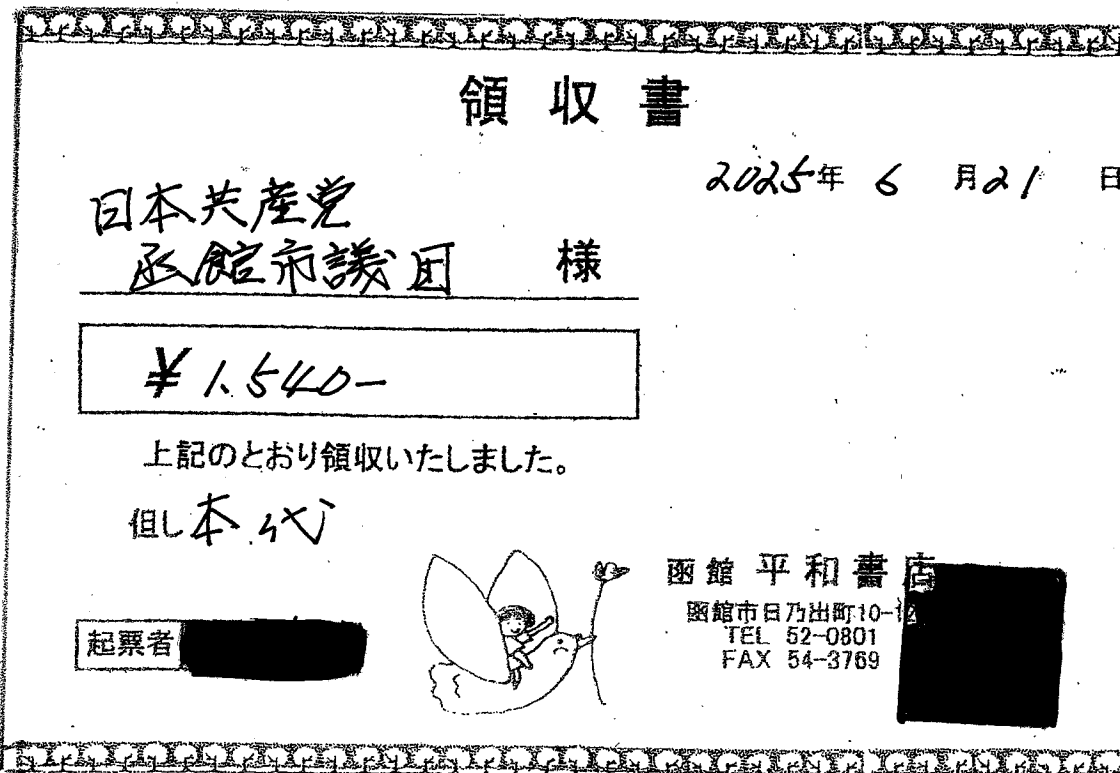 領収書
2025年 6月21日
日本共産党
函館市議団 様
¥1,540-
上記のとおり領収いたしました。
但し 本代
函館 平和書店
函館市日乃出町10-
TEL 52-0801
FAX 54-3769
起票者